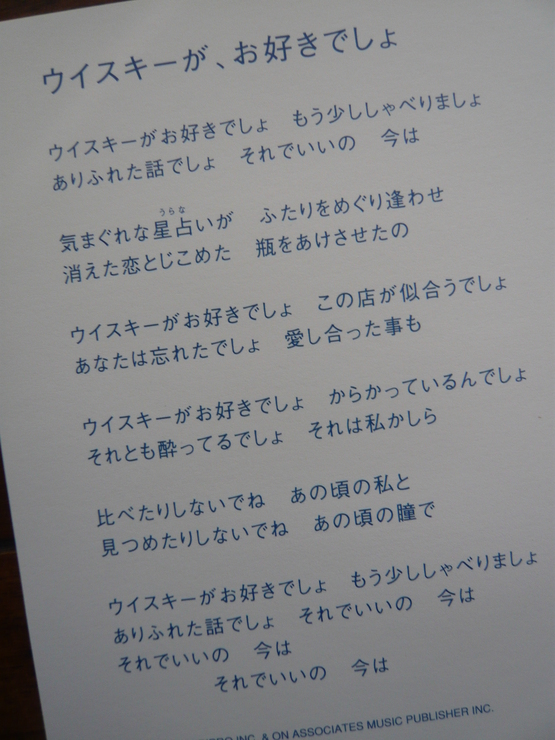 ウイスキーが、お好きでしょ
ウイスキーがお好きでしょ　もう少ししゃべりましょ
ありふれた話でしょ　それでいいの　今は
うらな
気まぐれな星占いが　ふたりをめぐり逢わせ
消えた恋とじこめた　瓶をあけさせたの
ウイスキーがお好きでしょ　この店が似合うでしょ
あなたは忘れたでしょ　愛し合った事も
ウイスキーがお好きでしょ　からかっているんでしょ
それとも酔ってるでしょ　それは私かしら
比べたりしないでね　あの頃の私と
見つめたりしないでね　あの頃の瞳で
ウイスキーがお好きでしょ　もう少ししゃべりましょ
ありふれた話でしょ　それでいいの　今は
それでいいの　今は
それでいいの　今は
INC. & ON ASSOCIATES MUSIC PUBLISHER INC.